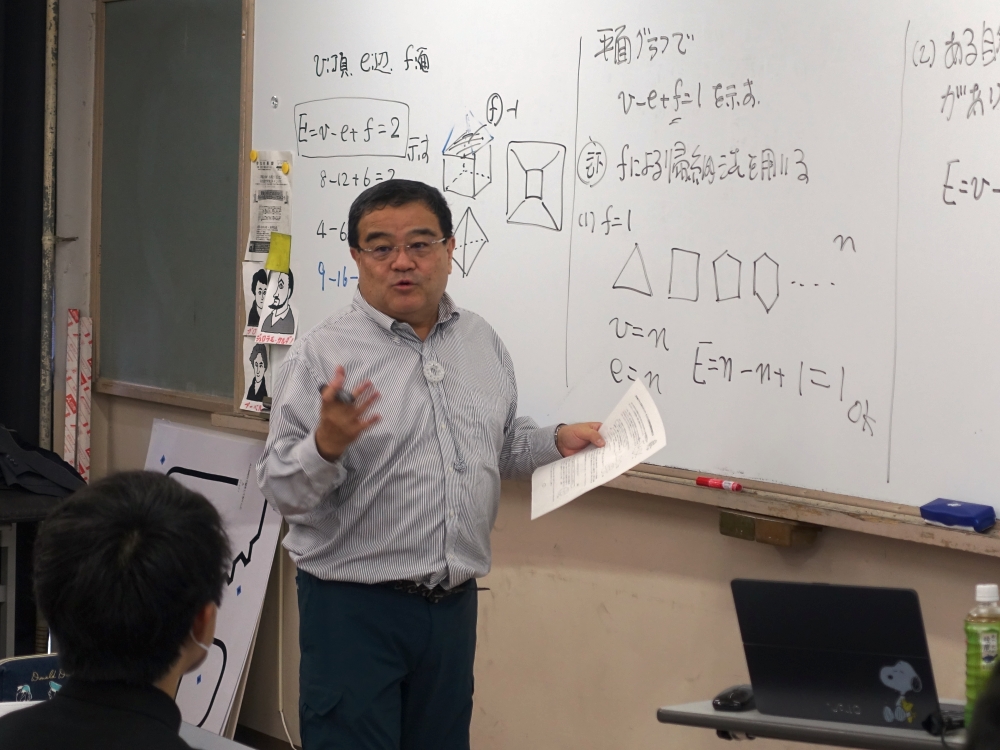 v:頂, e:辺, f:面
E=v-e+f=2
示す
8-12+6=2
4-6
9-16-
f -1
平面グラフで
v-e+f=1 を示す.
証 fによる帰納法を用いる
(1) f=1
n
v=n
e=n
E=n-n+1=1
OK
(2) ある自
があり
E=v-